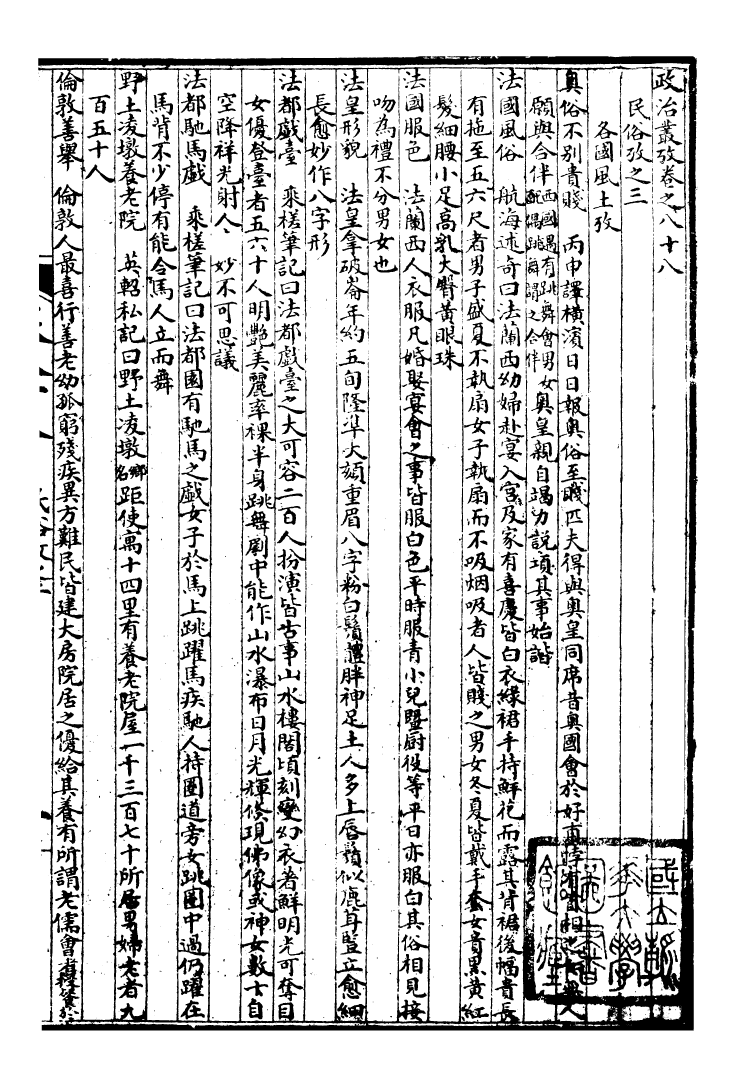 政治叢攷卷之八十八
民俗攷之三
各國風土攷
奧俗不別貴賤　丙申譯橫濱日日報奧俗至賤匹夫得與奧皇同席昔奧國會於好事時有首相之女無人
願與合伴西國遇有跳舞會男女配偶跳舞謂之合伴奧皇親自竭力説項其事始諧
法國風俗　航海述奇曰法蘭西幼婦赴宴入宮及家有喜慶皆白衣綠裙手持鮮花而露其背裙後幅貴長
有拖至五六尺者男子盛夏不執扇女子執扇而不吸烟吸者人皆賤之男女冬夏皆戴手套女貴黑黃紅
髮細腰小足高乳大臀黃眼珠
法國服色　法蘭西人衣服凡婚娶宴會之事皆服白色平時服青小兒暨廚役等平日亦服白其俗相見接
吻為禮不分男女也
法皇形貌　法皇拿破崙年約五旬隆準大顙重眉八字粉白鬚體胖神足土人多上唇鬚似鹿茸豎立愈細
長愈妙作八字形
法都戲臺　乘槎筆記曰法都戲臺之大可容二百人扮演皆古事山水樓閣頃刻變幻衣著鮮明光可奪目
女優登臺者五六十人明艷美麗率裸半身跳舞劇中能作山水瀑布日月光輝倏現佛像或神女數十自
空降祥光射人、妙不可思議
法都馳馬戲　乘槎筆記曰法都園有馳馬之戲女子於馬上跳躍馬疾馳人持圈道旁女跳圈中過仍躍在
馬背不少停有能令馬人立而舞
野土凌墩養老院　英軺私記曰野土凌墩鄉名距使寓十四里有養老院屋一千三百七十所居男婦老者九
百五十人
倫敦善舉　倫敦人最喜行善老幼孤窮殘疾異方難民皆建大房院居之優給其養有所謂老儒會者